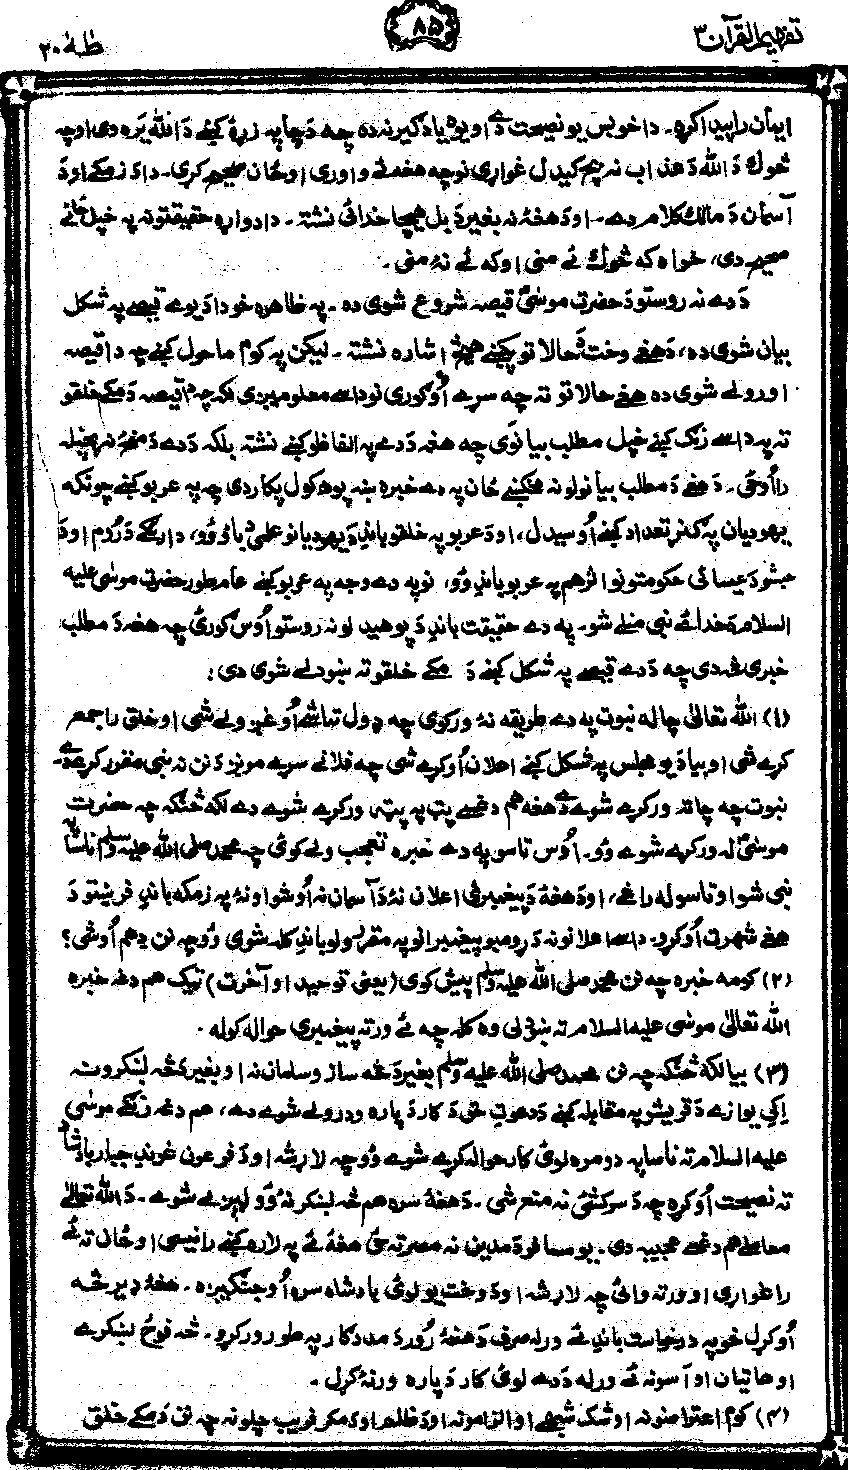 تفهیم القرآن ۳
۸۵
طٰهٰ ۲۰
ایمان راپیدا کړه۔ دا خو بس یو نصیحت دے او یوه یاد ګیرنه ده چه د چا په زړه کښے دَ الله یَره وی اوچه
څوک دَ الله دَ عذاب نه بچ کیدل غواړی نوچه هغه ئے واوری اوځان صحیح کړی۔ دا د زمکے او دَ
آسمان دَ مالک کلام دے۔ او دَ هغهٔ نه بغیر دَ بل هیچا خدائی نشته۔ دا دواړه حقیقتونه په خپل ځائے
صحیح دی، خواه که څوک ئے منی او که ئے نهٔ منی۔
دَ دے نه روستو دَ حضرت موسیٰؑ قیصه شروع شوی ده۔ په ظاهره خو دا دَ یوے قیصے په شکل
بیان شوی ده، دَ هغے وخت دَ حالاتو پکښے هیڅ اشاره نشته۔ لیکن په کوم ماحول کښے چه دا قیصه
اورولے شوی ده هغے حالاتو ته چه سړے اُوګوری نو داسے معلومیږی لکه چه دا قیصه دَ مکے خلقو
ته په داسے رنګ کښے خپل مطلب بیانوی چه هغه دَ دے په الفاظو کښے نشته بلکه دَ دے دَ منځه نه پخپله
راأوځی۔ دَ هغے دَ مطلب بیانولو نه مخکښے ځان په دے خبره ښه پوهه کول پکار دی چه په عربو کښے چونکه
یهودیان په ګنړ تعداد کښے اُوسیدل، او دَ عربو په خلقو باندِ دَ یهودیانو علمی دباؤ وُو، دارنګے دَ رُوم او دَ
حبشو دَ عیسائی حکومتونو اثر هم په عربو باندِ وُو، نو په دے وجه په عربو کښے عام طور حضرت موسیٰ علیه
السلام دَ خدائے نبی منلے شو۔ په دے حقیقت باندِ دَ پوهیدلو نه روستو اُوس ګوری چه هغه دَ مطلب
خبری څه دی چه دَ دے قیصے په شکل کښے دَ مکے خلقو ته ښودلے شوی دی:
(۱) الله تعالیٰ چاله نبوت په دے طریقه نهٔ ورکوی چه ډول تماشے اُوغږولے شی او خلق راجمع
کړے شی او بیا دَ یو مجلس په شکل کښے اعلان اُوکړے شی چه فلانے سړے مونږ دَ نن نه نبی مقرر کړے دے۔
نبوت چه چاته ورکړے شوے دے هغه هم دغسے پټ په پټه ورکړے شوے دے لکه څنګه چه حضرت
موسیٰؑ له ورکړے شوے وُو۔ اُوس تاسو په دے خبره تعجب ولے کوئ چه محمد صلی الله علیه وسلم ناساپه
نبی شو او تاسو له راغے، او دَ هغهٔ دَ پیغمبرئ اعلان نهٔ دَ آسمان نه اُوشو او نهٔ په زمکه باندِ فرښتو دَ
هغے شهرت اُوکړو۔ داسے اعلانونه دَ ړومبو پیغمبرانو په مقررولو باندِ کله شوی وُو چه نن دِ هم اُوشی؟
(۲) کومه خبره چه نن محمد صلی الله علیه وسلم پیش کوی (یعنی توحید او آخرت) ټیک هم دغه خبره
الله تعالیٰ موسٰی علیه السلام ته ښودلی وه کله چه ئے ورته پیغمبری حواله کوله۔
(۳) بیا لکه څنګه چه نن محمد صلی الله علیه وسلم بغیر دَ څه ساز وسامان نه او بغیر دَ څه لښکر و ته
اِکی یوازے دَ قریشو په مقابله کښے دَ دعوتِ حق دَ کار دَ پاره ودرولے شوے دے، هم دغه رنګے موسیٰ
علیه السلام ته ناساپه دومره لوئ کار حواله کړے شوے وُو چه لاړ شه او دَ فرعون غوندِ جبار بادشاه
ته نصیحت اُوکړه چه دَ سرکشئ نه منع شی۔ دَ هغهٔ سره هم څه لښکر نهٔ وُو لیږلے شوے۔ دَ الله تعالیٰ
معاملے هم دغسے عجیبه دی۔ یو مسافر دَ مدین نه مصر ته ځی هغه ئے په لاره کښے رانیسی او ځان ته ئے
راغواړی او ورته وائی چه لاړ شه او دَ وخت یو لوئ بادشاه سره اُوجنګیږه۔ هغهٔ ډیر څه
اُوکړل خو په درخواست باندِ ئے ورله صرف دَ هغهٔ رُور دَ مددګار په طور ورکړو۔ څه فوځ لښکرے
او هاتیان او آسونه ئے ورله دَ دے لوئ کار دَ پاره ورنهٔ کړل۔
(۴) کوم اعتراضونه او شک شبهے او الزامونه او دَ ظلم او دَ مکر فریب چلونه چه نن دَ مکے خلق